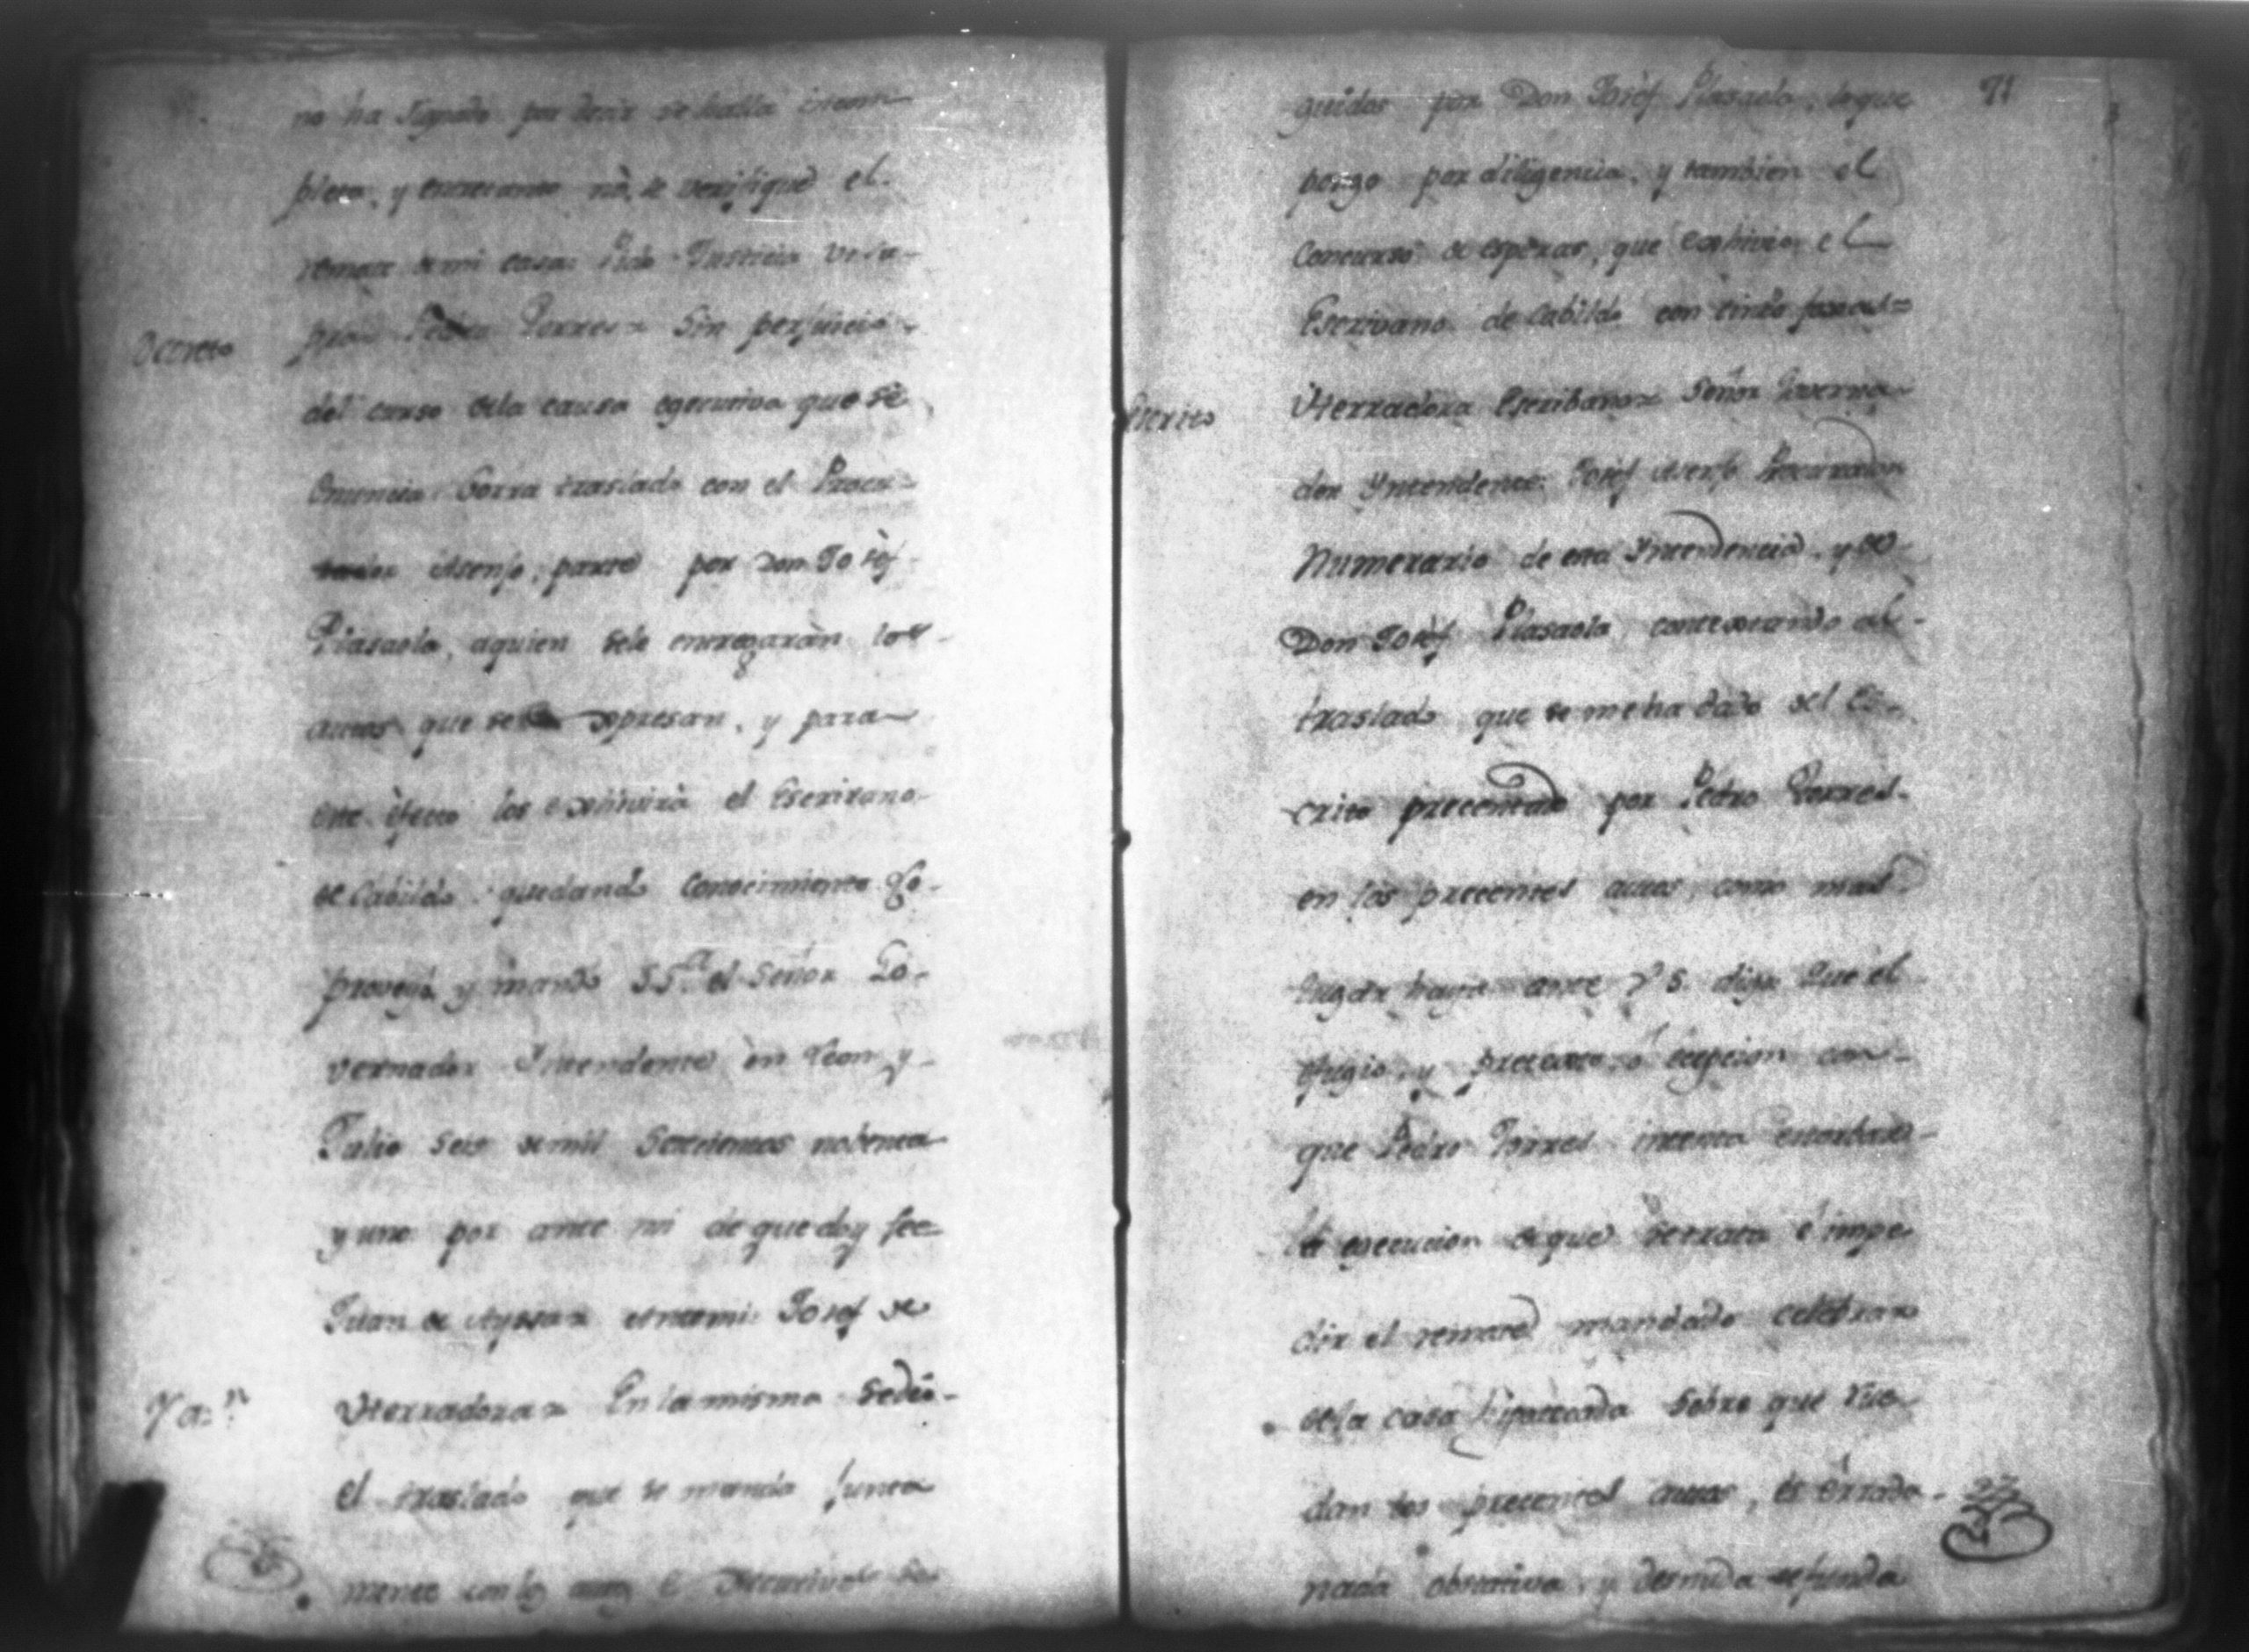 no ha pagado por decir se halla incom-
pleta, y entretanto no se verifique el
remate de mi casa: Pido Justicia
Pedro Torres = Sin perjuicio
Decreto
del curso dela causa egecutiva que se
enuncia Corra traslado con el Procu-
rador Asenjo, parte por Don Josef
Plasaola, aquien sele entregarán los
autos que se expresan, y para
este efecto los exhivirá el Escrivano
de Cabildo quedando conocimiento Lo
proveyó y mandó SSª el Señor Go-
vernador Yntendente en Leon, y
Julio seis demil Setecientos nobenta
y uno por ante mi de que doy fee =
Juan de Ayssa = Antemi: Josef de
Herradora = En la misma sedió
el traslado que se manda junta
mente con los autos
guidos por Don Josef Plasaola, loque
71
pongo por diligencia, y tambien el
Concurso de esperas, que exhivio el
Escrivano de Cabildo con
Escrito
Herradora Escribano = Señor Governa-
dor Yntendente: Josef Asenjo Procurador
Numerario de esta Yntendencia, y de
Don Josef Plasaola contextando al
traslado que se me ha dado del Es-
crito precentado por Pedro Torres
en los precentes autos, como mas
lugar haya ante V S. digo: Que el
efugio, y pretexto, ó ecepcion con
que Pedro Torres intenta estorbar
la egecucion deque setrata é impe-
dir el remate mandado celebrar
dela casa hipotecada sobre que rue-
dan los precentes autos, es errada
nada obstativa, y desnuda defunda